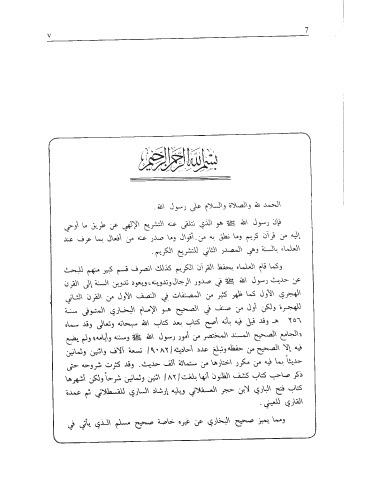 ٧
7
بسم الله الرحمن الرحيم
الحمد لله والصلاة والسلام على رسول الله.
فإن رسول الله ﷺ هو الذي نتلقى عنه التشريع الإلهي عن طريق ما أوحي
إليه من قرآن كريم وما نطق به من أقوال وما صدر عنه من أفعال بما عرف عند
العلماء بالسنة وهي المصدر الثاني للتشريع الكريم.
وكما قام العلماء بحفظ القرآن الكريم كذلك انصرف قسم كبير منهم للبحث
عن حديث رسول الله ﷺ في صدور الرجال وتدوينه، ويعود تدوين السنة إلى القرن
الهجري الأول كما ظهر كثير من المصنفات في النصف الأول من القرن الثاني
للهجرة ولكن أول من صنف في الصحيح هو الإمام البخاري المتوفى سنة
٢٥٦ هـ وقد قيل فيه بأنه أصح كتاب بعد كتاب الله سبحانه وتعالى وقد سماه
«الجامع الصحيح المسند المختصر من أمور رسول الله ﷺ وسننه وأيامه» ولم يضع
فيه إلا الصحيح من حفظه وتبلغ عدد أحاديثه/٩٠٨٢/ تسعة آلاف واثنين وثمانين
حديثاً بما فيه من مكرر اختارها من ستمائة ألف حديث. وقد كثرت شروحه حتى
ذكر صاحب كتاب كشف الظنون أنها بلغت/٨٢/ اثنين وثمانين شرحاً ولكن أشهرها
كتاب فتح الباري لابن حجر العسقلاني ويليه إرشاد الساري للقسطلاني ثم عمدة
القاري للعيني.
ومما يميز صحيح البخاري عن غيره خاصة صحيح مسلم الذي يأتي في